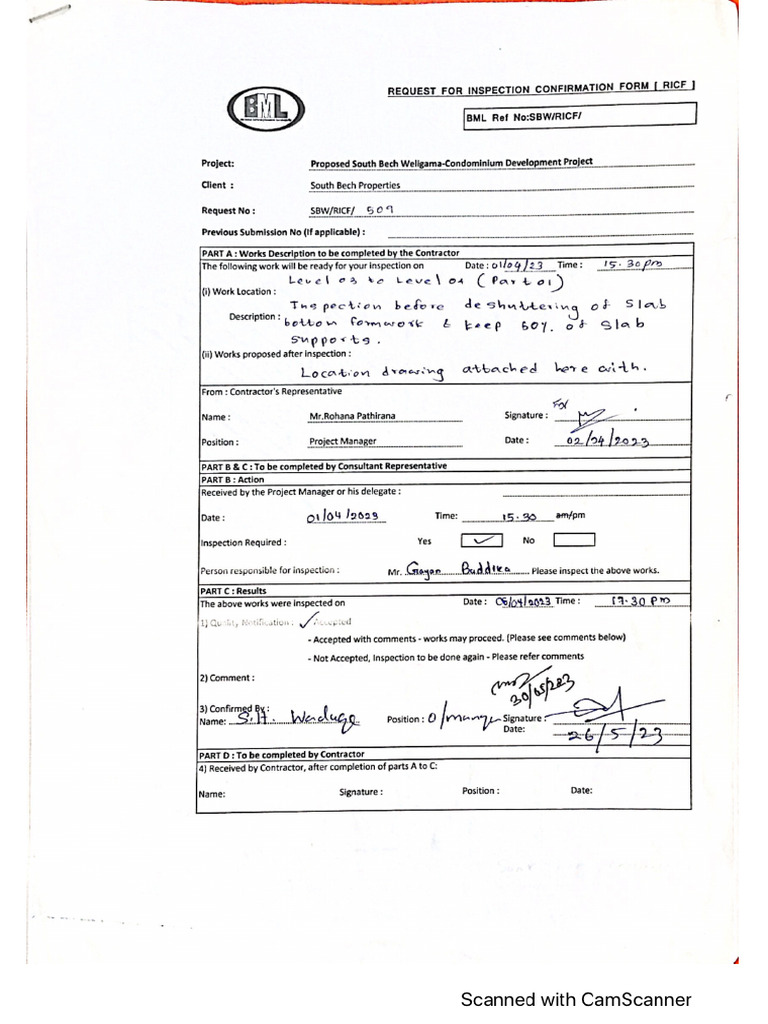 BML
REQUEST FOR INSPECTION CONFIRMATION FORM [ RICF ]
BML Ref No:SBW/RICF/
Project: Proposed South Bech Weligama-Condominium Development Project
Client : South Bech Properties
Request No : SBW/RICF/ 509
Previous Submission No (If applicable) :
PART A : Works Description to be completed by the Contractor
The following work will be ready for your inspection on Date : 01/04/23 Time : 15.30pm
Level 03 to Level 04 (Part 01)
(i) Work Location :
Inspection before deshuttering of Slab
Description : bottom formwork & keep 50%. of Slab
supports.
(ii) Works proposed after inspection :
Location drawing attached here with.
From : Contractor's Representative
Name : Mr.Rohana Pathirana Signature :
Position : Project Manager Date : 02/04/2023
PART B & C : To be completed by Consultant Representative
PART B : Action
Received by the Project Manager or his delegate :
Date : 01/04/2023 Time: 15.30 am/pm
Inspection Required : Yes ✓ No
Person responsible for inspection : Mr. Gayan Buddika Please inspect the above works.
PART C : Results
The above works were inspected on Date : 06/04/2023 Time : 17.30 pm
1) Quality Notification : ✓ Accepted
- Accepted with comments - works may proceed. (Please see comments below)
- Not Accepted, Inspection to be done again - Please refer comments
2) Comment :
30/05/2023
3) Confirmed By :
Name: S.H. Waduge Position : O/Manger Signature :
Date: 26/5/23
PART D : To be completed by Contractor
4) Received by Contractor, after completion of parts A to C:
Name: Signature : Position : Date:
Scanned with CamScanner